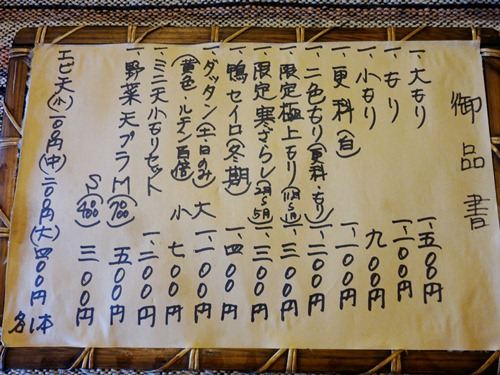 御品書
一、大もり 一、五〇〇円
一、もり 一、一〇〇円
一、小もり 九〇〇円
一、更科（白） 一、一〇〇円
一、二色もり（更科・もり） 一、二〇〇円
一、限定極上もり 一、三〇〇円
一、限定寒ざらし 一、三〇〇円
一、鴨セイロ（冬期） 一、四〇〇円
一、ダッタン（土日のみ） 大 一、一〇〇円
（黄色ルチン百倍） 小 七〇〇円
一、ミニ天小もりセット 一、二〇〇円
一、野菜天プラ M（700） 五〇〇円
S（400） 三〇〇円
エビ天（小）一〇〇円（中）二〇〇円（大）四〇〇円 各1本